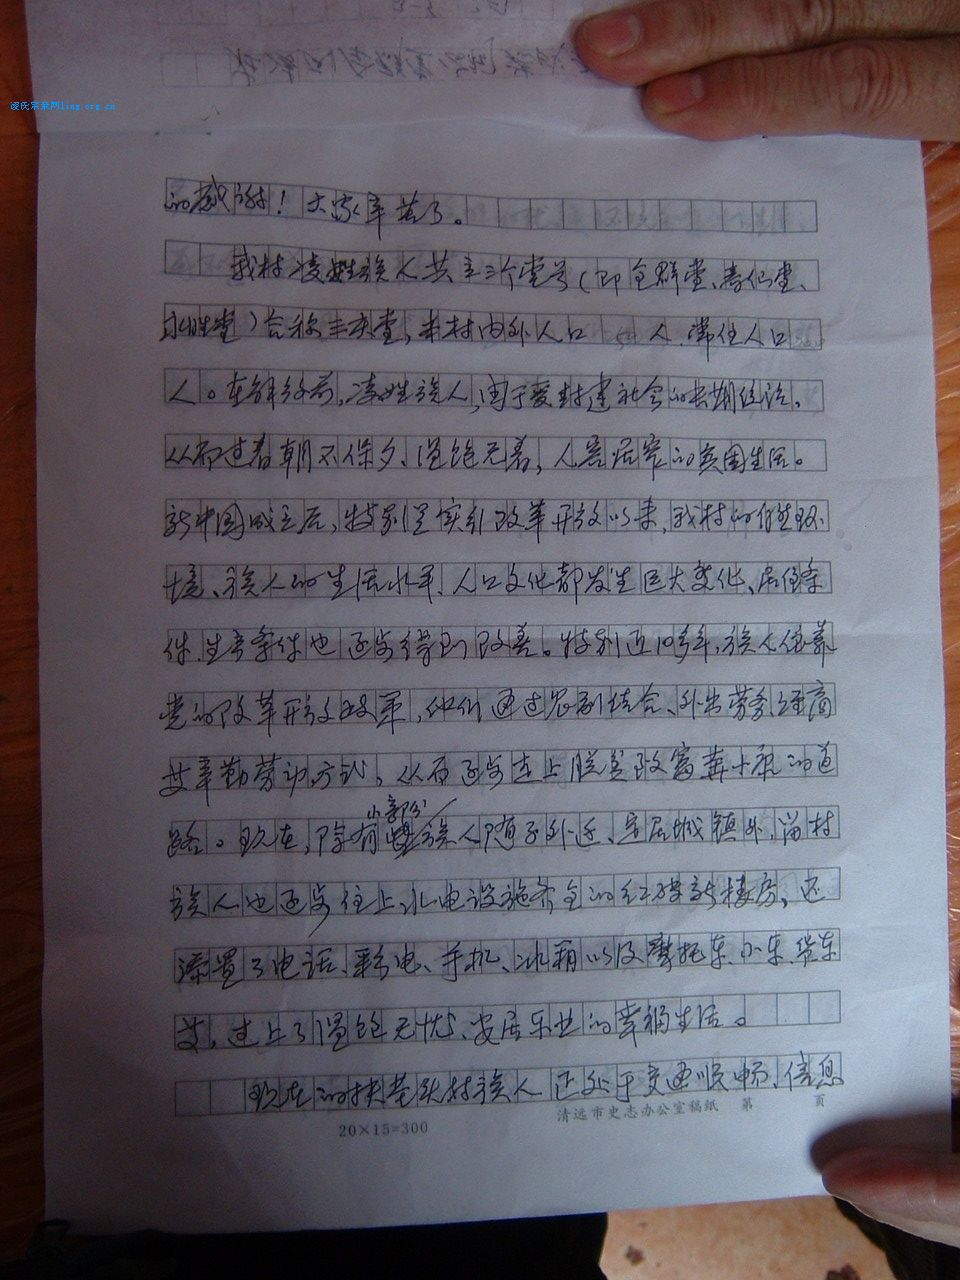 凌氏宗亲网ling.org.cn
的感谢！大家辛苦了。
我村凌姓族人共立三个堂号（即合群堂、春仁堂、
永胜堂）合称三夹堂，本村内外人口 人，常住人口
人。在解放前，凌姓族人，由于受封建社会的长期统治，
从而过着朝不保夕、温饱无着，人畜居窄的贫困生活。
新中国成立后，特别是实行改革开放以来，我村的住生环
境、族人的生活水平、人口文化都发生巨大变化、居住条
件、生产条件也逐步得到改善。特别近10多年，族人依靠
党的改革开放政策，他们通过农副结合、外出劳务、经商
艾辛勤劳动方式，从而逐步走上脱贫致富奔小康的道
小部分
路。现在，除有族人随子外迁、定居城镇外，留村
族人也逐步住上水电设施齐全的红砖新楼房，还
添置了电话、彩电、手机、冰箱以及摩托车、小车、货车
艾，过上了温饱无忧、安居乐业的幸福生活。
现在的扶基跃村族人正处于交通顺畅、信息
20×15=300
清远市史志办公室稿纸 第 页